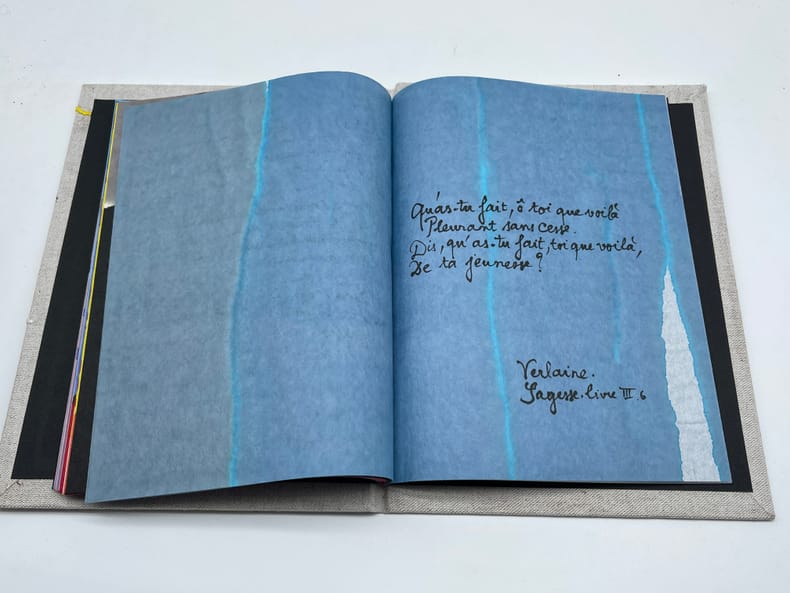 Qu'as-tu fait, ô toi que voilà
Pleurant sans cesse.
Dis, qu'as-tu fait, toi que voilà,
De ta jeunesse?
Verlaine.
Sagesse. livre III. 6